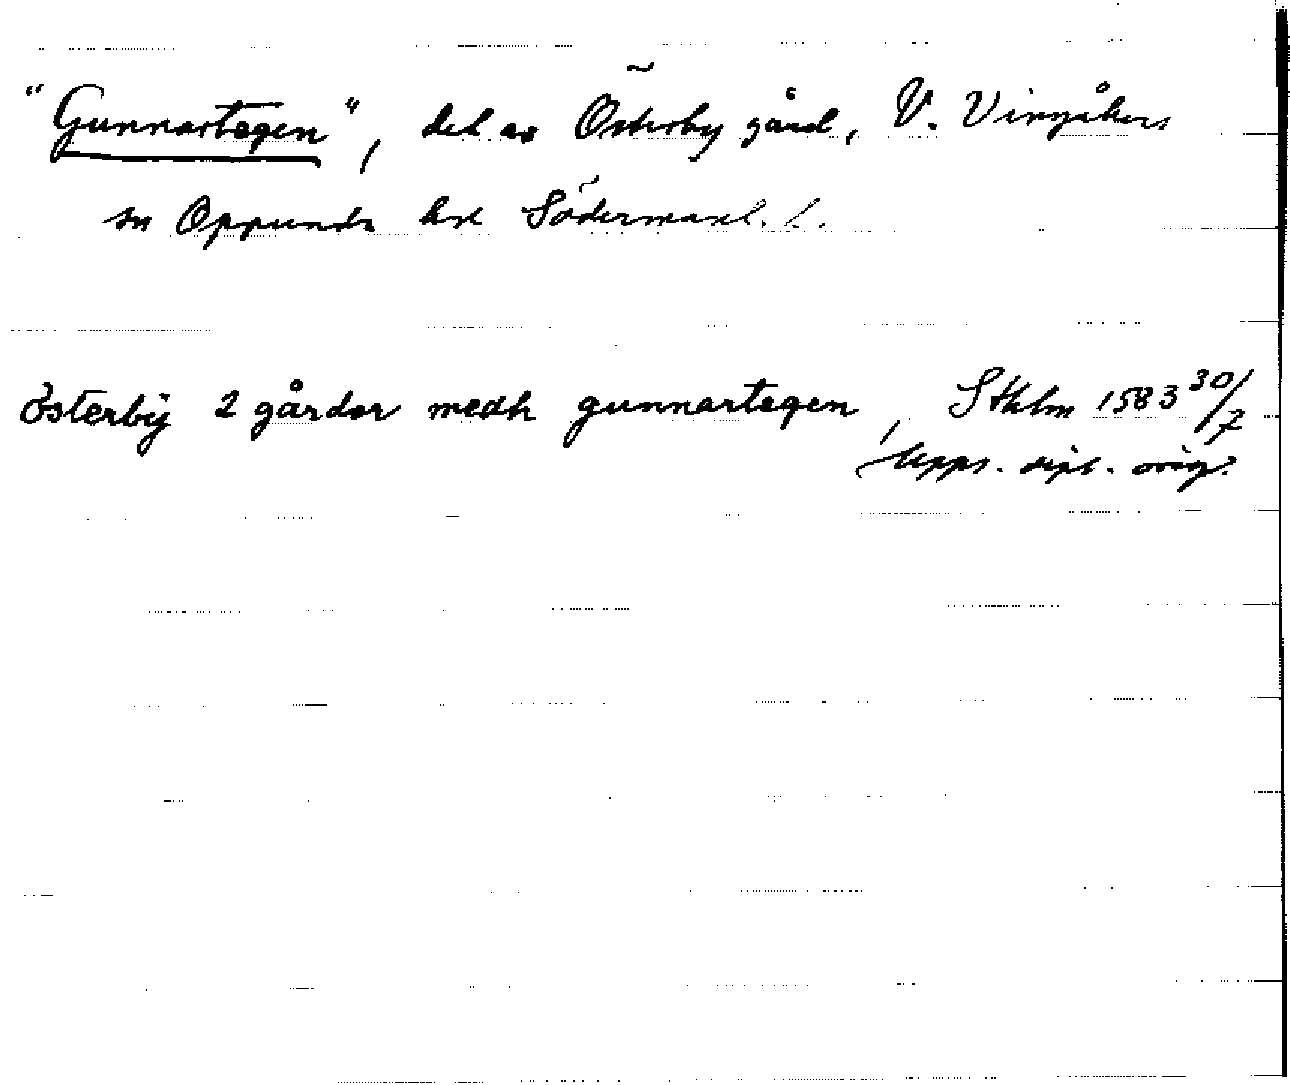 "Gunnartegen", del av Österby gård, V. Vingåkers
sn Oppunda hd Södermanl. l.
Österbÿ 2 gårder medh gunnartegen, Sthlm 1583 30/7
Upps. dipl. orig.